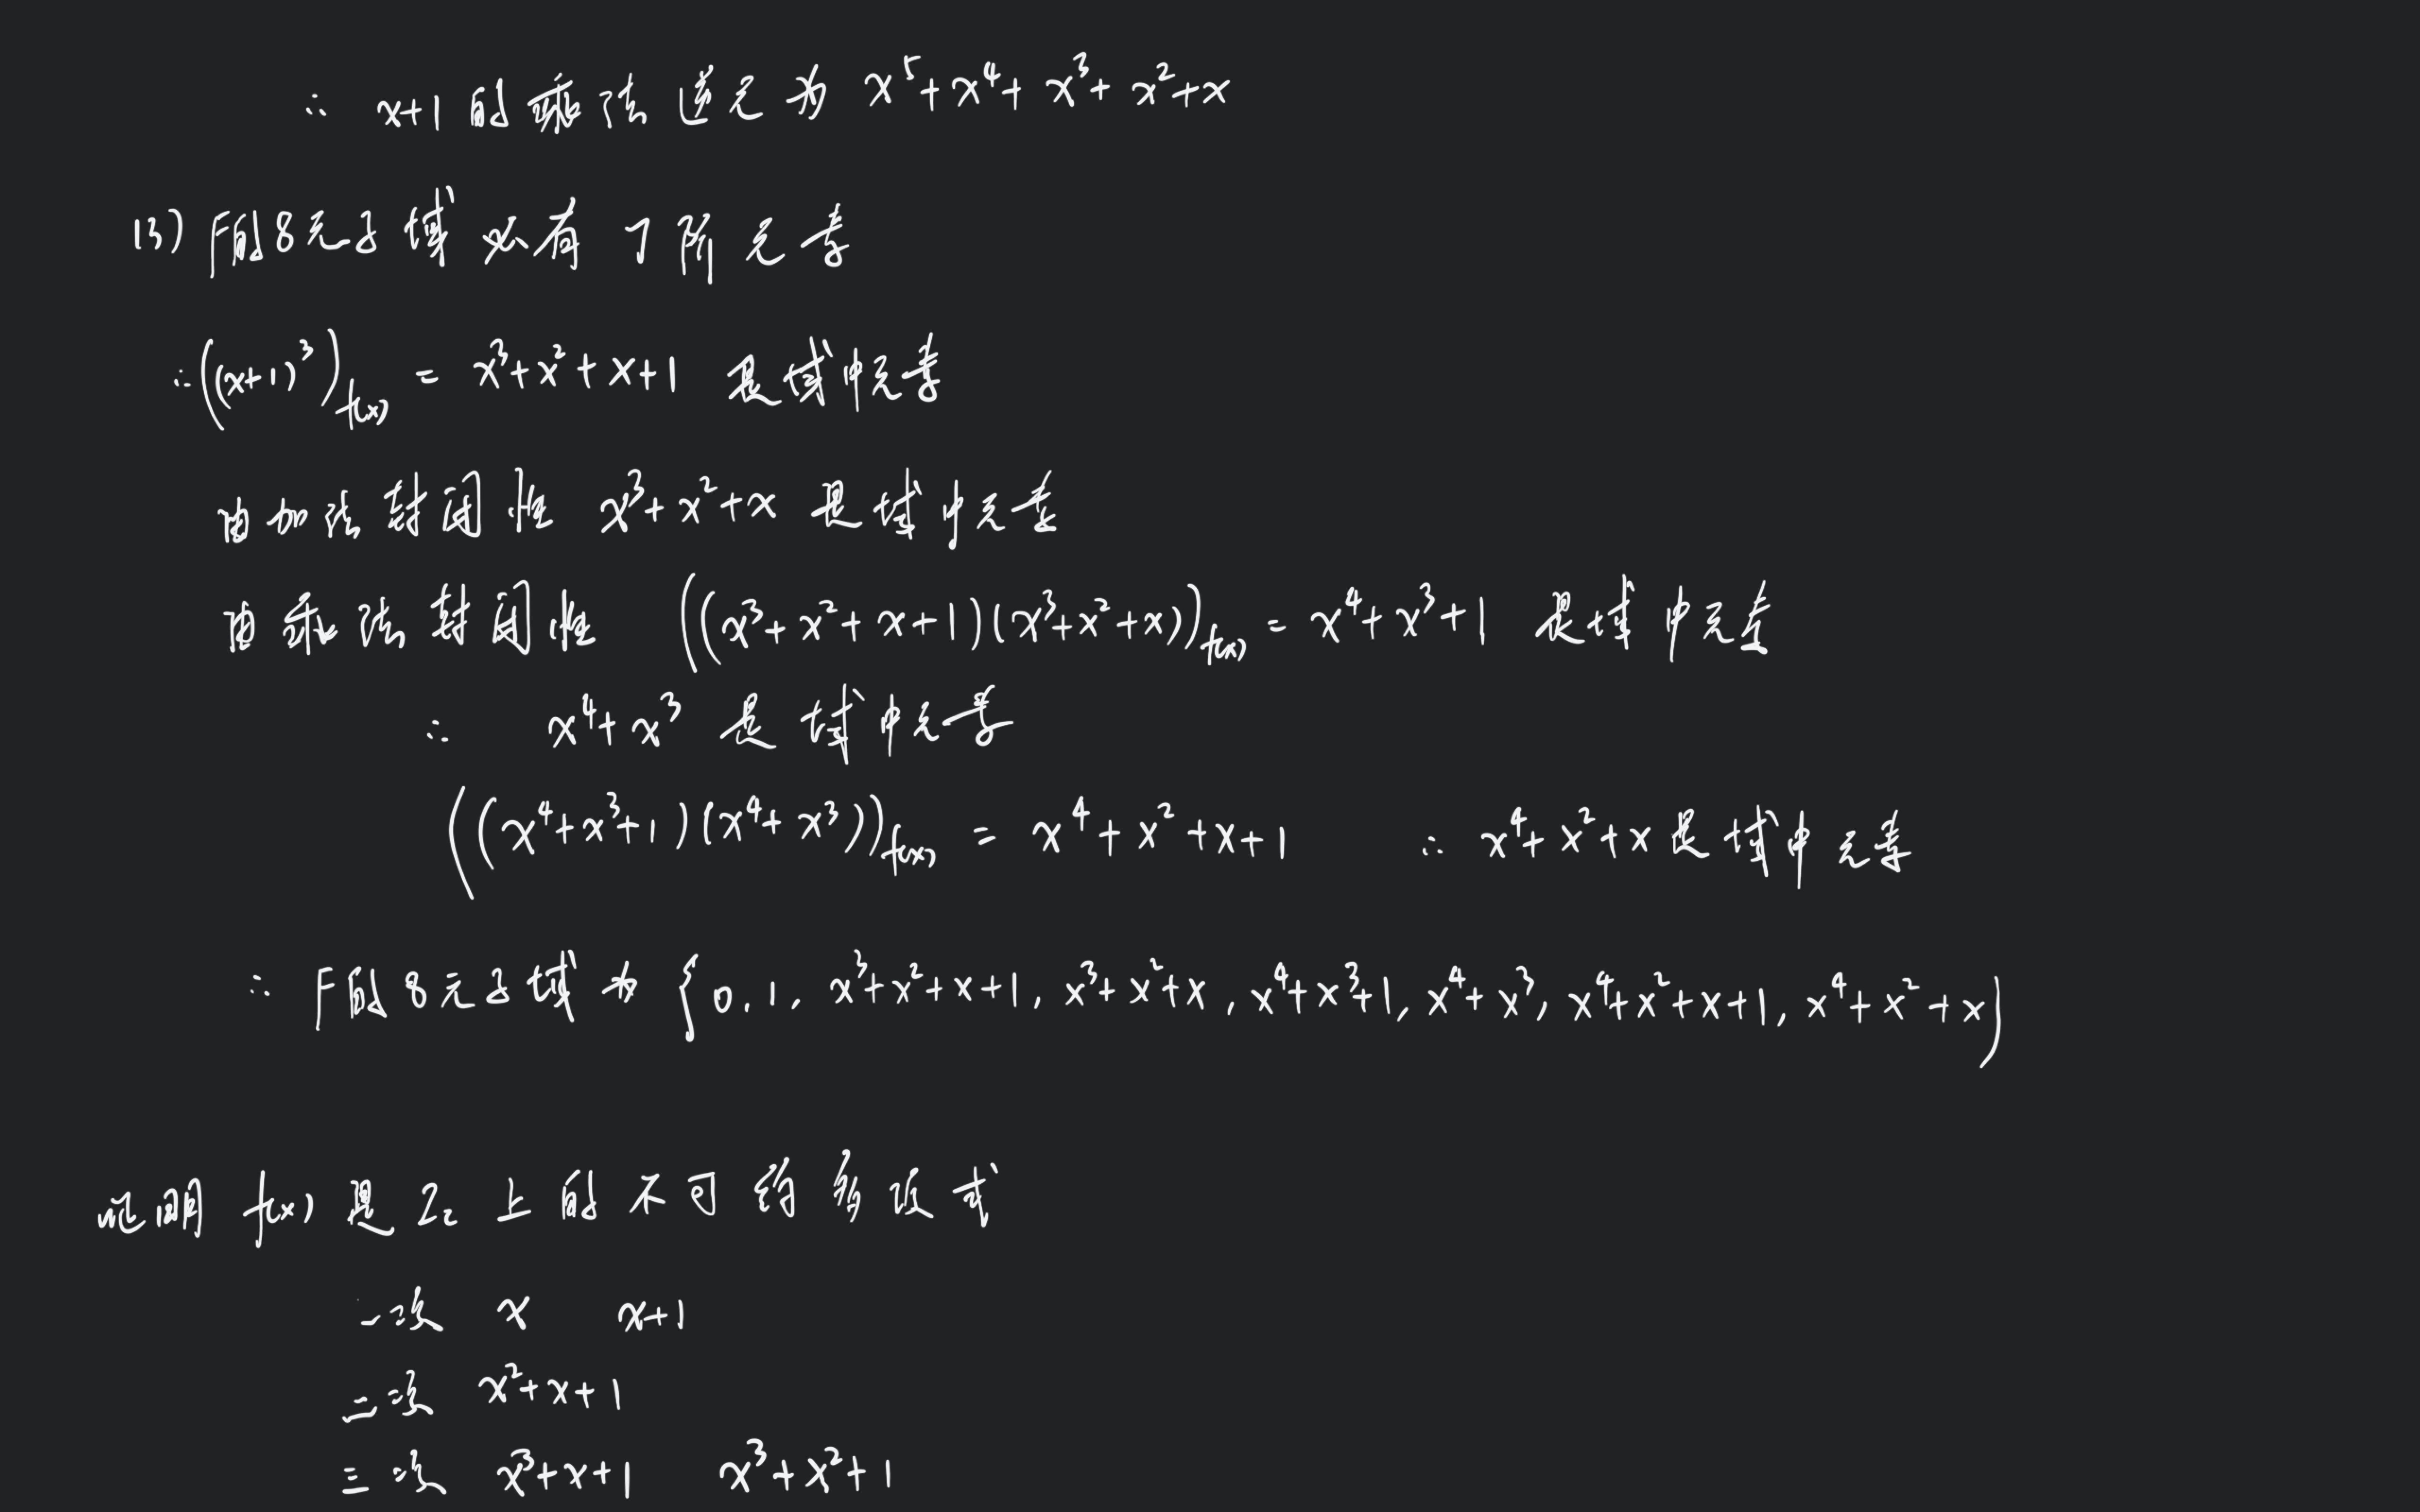 ∴ x+1 的乘法逆元为 x⁵+x⁴+x³+x²+x
(3) F的8元子域必有7阶元素
∴ ((x+1)³)f(x) = x³+x²+x+1 是域中元素
由加法封闭性 x³+x²+x 是域中元素
由乘法封闭性 ((x³+x²+x+1)(x³+x²+x))f(x) = x⁴+x³+1 是域中元素
∴ x⁴+x³ 是域中元素
((x⁴+x³+1)(x⁴+x³))f(x) = x⁴+x²+x+1 ∴ x⁴+x²+x 是域中元素
∴ F的8元子域为 {0, 1, x³+x²+x+1, x³+x²+x, x⁴+x³+1, x⁴+x³, x⁴+x²+x+1, x⁴+x²+x}
证明 f(x) 是 Z₂ 上的不可约多项式
一次 x x+1
二次 x²+x+1
三次 x³+x+1 x³+x²+1